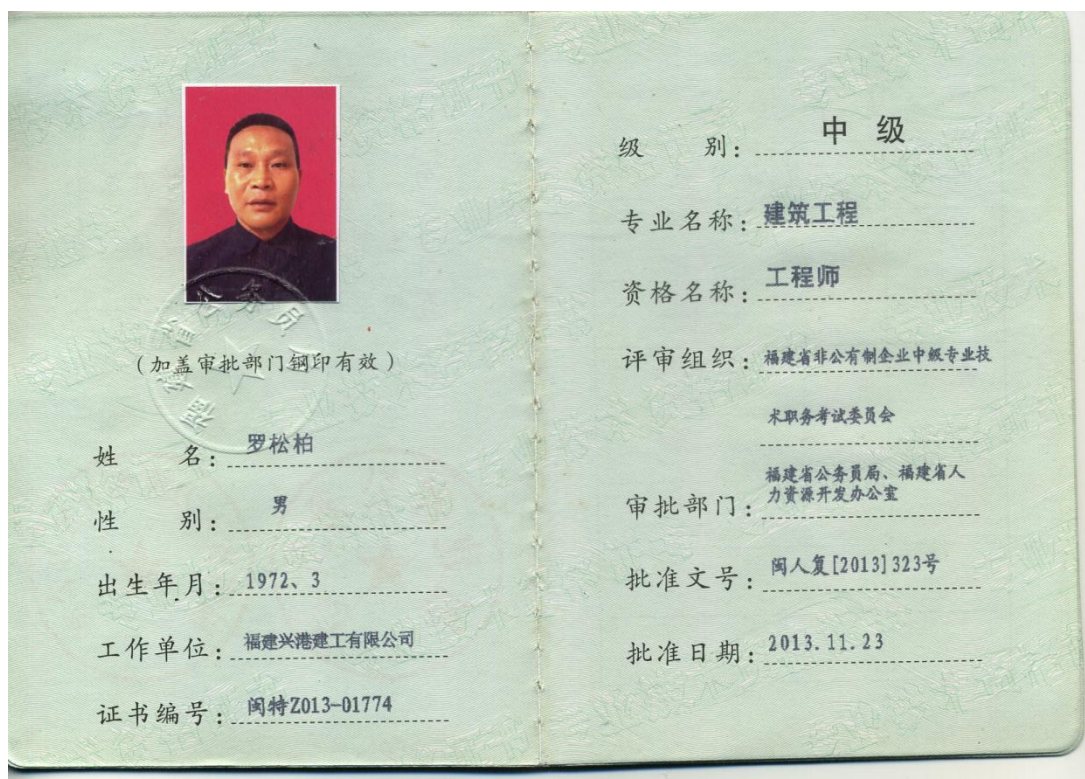 福建省公务员
(加盖审批部门钢印有效)
姓 名: 罗松柏
性 别: 男
出生年月: 1972、3
工作单位: 福建兴港建工有限公司
证书编号: 闽特Z013-01774
级 别: 中 级
专业名称: 建筑工程
资格名称: 工程师
评审组织: 福建省非公有制企业中级专业技
术职务考试委员会
审批部门: 福建省公务员局、福建省人
力资源开发办公室
批准文号: 闽人复[2013]323号
批准日期: 2013.11.23